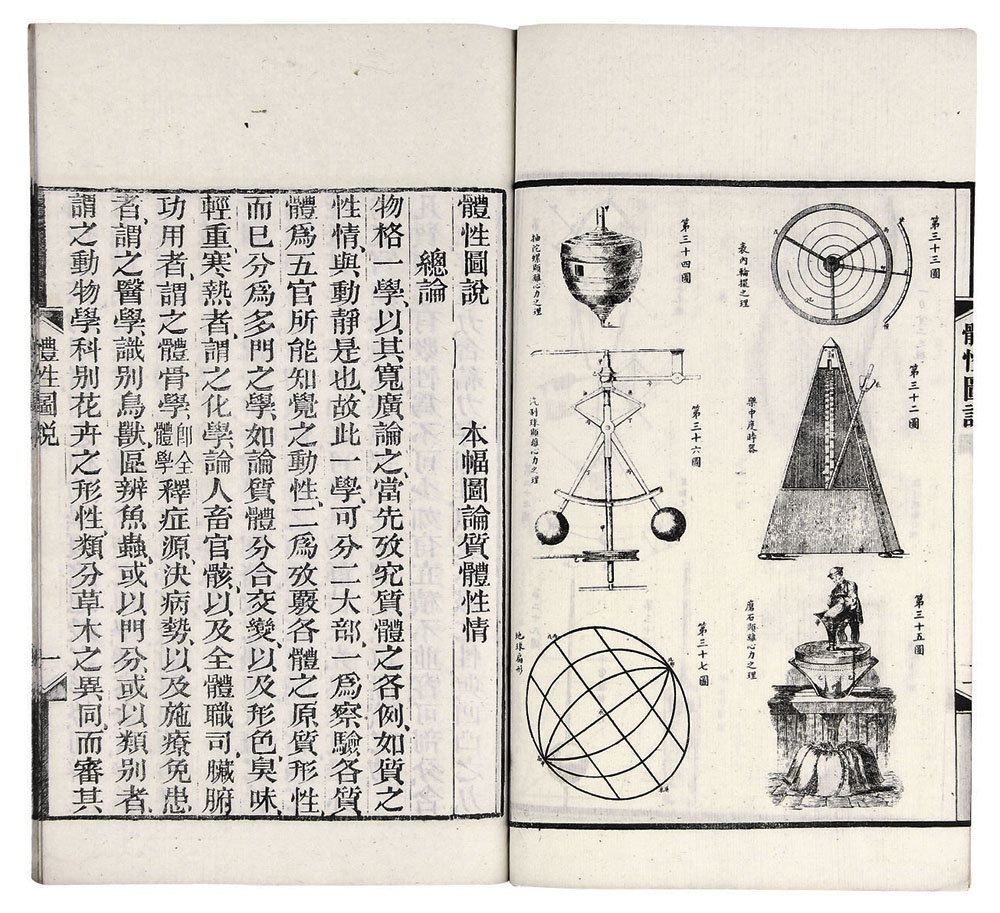 體性圖說
第三十三圖
表內輪擺之理
第三十二圖
樂中定時器
第三十五圖
磨石顯離心力之理
第三十四圖
抽陀螺顯離心力之理
第三十六圖
汽制球顯離心力之理
第三十七圖
地球扁形
體性圖說 本幅圖論質體性情
總論
物格一學、以其寬廣論之、當先攷究質體之各例、如質之
性情、與動靜是也、故此一學、可分二大部、一爲察驗各質
體、爲五官所能知覺之動性、二爲攷覈各體之原質形性
而已、分爲多門之學、如論質體分合交變、以及形色臭味、
輕重寒熱者、謂之化學、論人畜官骸、以及全體職司、臟腑
功用者、謂之體骨學、卽全體學釋症源、決病勢、以及施療免患
者、謂之醫學、識別鳥獸、區辨魚蟲、或以門分、或以類別者、
謂之動物學、科别花卉之形性、類分草木之異同、而審其
體性圖說
一